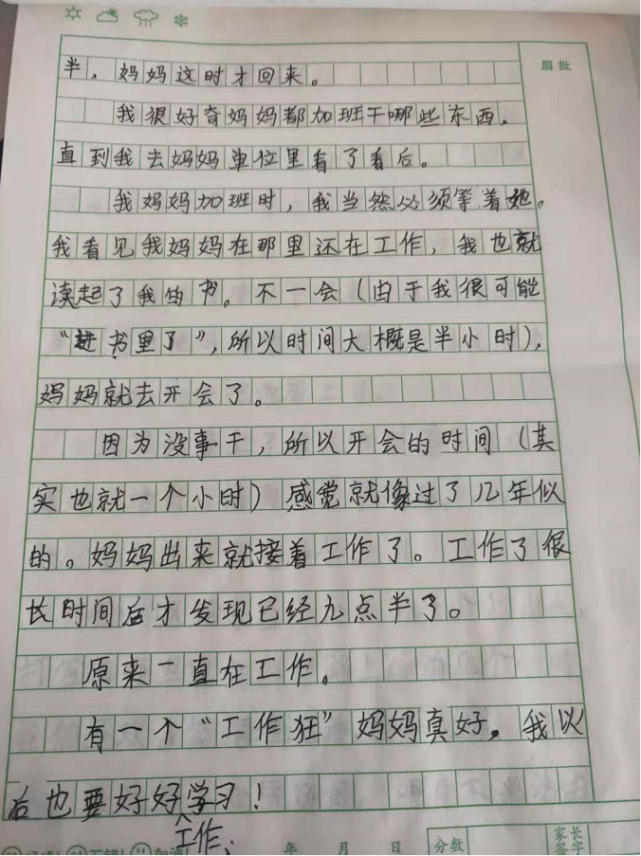 眉批
半，妈妈这时才回来。
我很好奇妈妈都加班干哪些东西，
直到我去妈妈单位里看了看后。
我妈妈加班时，我当然必须等着她。
我看见我妈妈在那里还在工作，我也就
读起了我的书。不一会（由于我很可能
“进书里了”，所以时间大概是半小时），
妈妈就去开会了。
因为没事干，所以开会的时间（其
实也就一个小时）感觉就像过了几年似
的。妈妈出来就接着工作了。工作了很
长时间后才发现已经九点半了。
原来一直在工作。
有一个“工作狂”妈妈真好，我以
后也要好好学习！
工作，
年 月 日 分数 家长签字